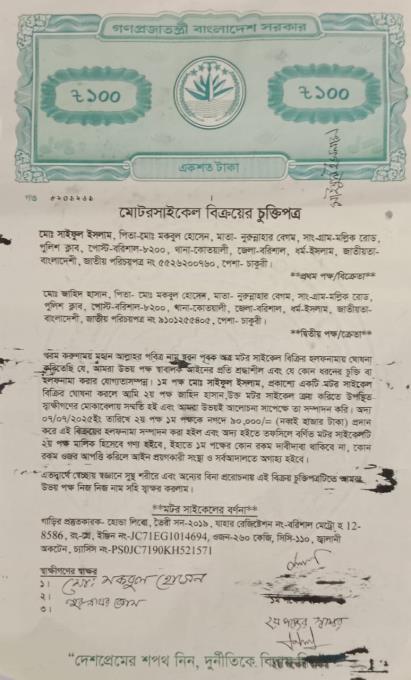 গণপ্রজাতন্ত্রী বাংলাদেশ সরকার
৳১০০
৳১০০
একশত টাকা
মোটরসাইকেল বিক্রয়ের চুক্তিপত্র
মোঃ সাইফুল ইসলাম, পিতা-মোঃ মকবুল হোসেন, মাতা- নুরুন্নাহার বেগম, সাং-গ্রাম-মল্লিক রোড,
পুলিশ ক্লাব, পোস্ট-বরিশাল-৮২০০, থানা-কোতয়ালী, জেলা-বরিশাল, ধর্ম-ইসলাম, জাতীয়তা-
বাংলাদেশী, জাতীয় পরিচয়পত্র নং ৫৫২৬২০০৭৬০, পেশা- চাকুরী।
**প্রথম পক্ষ/বিক্রেতা**
মোঃ জাহিদ হাসান, পিতা- মোঃ মকবুল হোসেন, মাতা- নুরুন্নাহার বেগম, সাং-গ্রাম-মল্লিক রোড,
পুলিশ ক্লাব, পোস্ট-বরিশাল-৮২০০, থানা-কোতয়ালী, জেলা-বরিশাল, ধর্ম-ইসলাম, জাতীয়তা-
বাংলাদেশী, জাতীয় পরিচয়পত্র নং ৯১০১২৫৫৪০৫, পেশা- চাকুরী।
**দ্বিতীয় পক্ষ/ক্রেতা**
পরম করুনাময় মহান আল্লাহর পবিত্র নাম স্মরন পূর্বক অত্র মটর সাইকেল বিক্রির হলফনামায় ঘোষনা
করিতেছি যে, আমরা উভয় পক্ষ স্বাবালক আইনের প্রতি শ্রদ্ধাশীল এবং যে কোন ধরনের চুক্তি বা
হলফনামা করার যোগ্যতাসম্পন্ন। ১ম পক্ষ মোঃ সাইফুল ইসলাম, প্রকাশ্যে একটি মটর সাইকেল
বিক্রির ঘোষনা করলে আমি ২য় পক্ষ জাহিদ হাসান,উক্ত মটর সাইকেল ক্রয় করিতে উপস্থিত
স্বাক্ষীগণের মোকাবেলায় সম্মতি হই এবং আমরা উভয়ই আলোচনা সাপেক্ষে তা সম্পাদন করি। অদ্য
০৭/০৭/২০২৫ইং তারিখে ২য় পক্ষ ১ম পক্ষকে নগদে ৯০,০০০/= (নব্বই হাজার টাকা) প্রদান
করে এই বিক্রয়ের হলফনামা সম্পাদন করা হইল এবং অদ্য হইতে তফসিলে বর্ণিত মটর সাইকেলটি
২য় পক্ষ মালিক হিসেবে গণ্য হইবে, ইহাতে ১ম পক্ষের কোন রকম দাবীদাবা থাকিবে না, কোন
রকম ওজর আপত্তি করিলে আইন প্রয়গকারী সংস্থা ও সর্বআদালতে অগ্রাহ্য হইবে।
এতদ্বার্থে স্বেচ্ছায় স্বজ্ঞানে সুস্থ শরীরে এবং অন্যের বিনা প্ররোচনায় এই বিক্রয় চুক্তিপত্রটিতে আমরা
উভয় পক্ষ নিজ নিজ নাম সহি স্বাক্ষর করলাম।
**মটর সাইকেলের বর্ণনা**
গাড়ির প্রস্তুতকারক- হোন্ডা লিভো, তৈরী সন-২০১৯, যাহার রেজিষ্টেশন নং-বরিশাল মেট্রো হ 12-
8586, ইঞ্জিন নং-JC71EG1014694, ওজন-২৬০ কেজি, সিসি-১১০, জ্বালানী
অকটেন, চ্যাসিস নং-PS0JC7190KH521571
স্বাক্ষীগণের স্বাক্ষর
১। মোঃ মকবুল হোসেন
২।
৩।
২য় পক্ষের স্বাক্ষর
"দেশপ্রেমের শপথ নিন, দুর্নীতিকে বিদায় দিন"